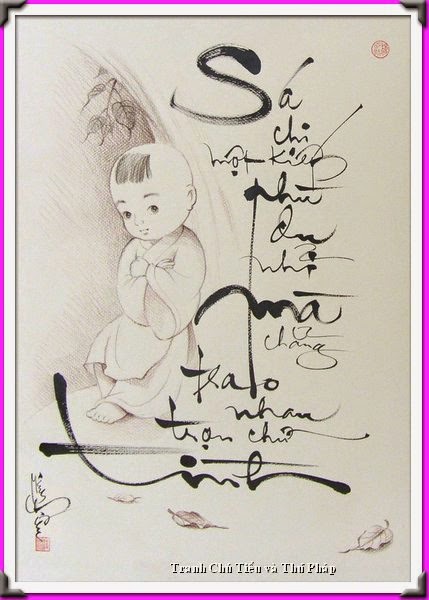 Sá
chi
một kiếp
phù
du
nhỉ
mà
chẳng
trao
nhau
trọn chữ
tình
Tranh Chú Tiểu và Thú Pháp